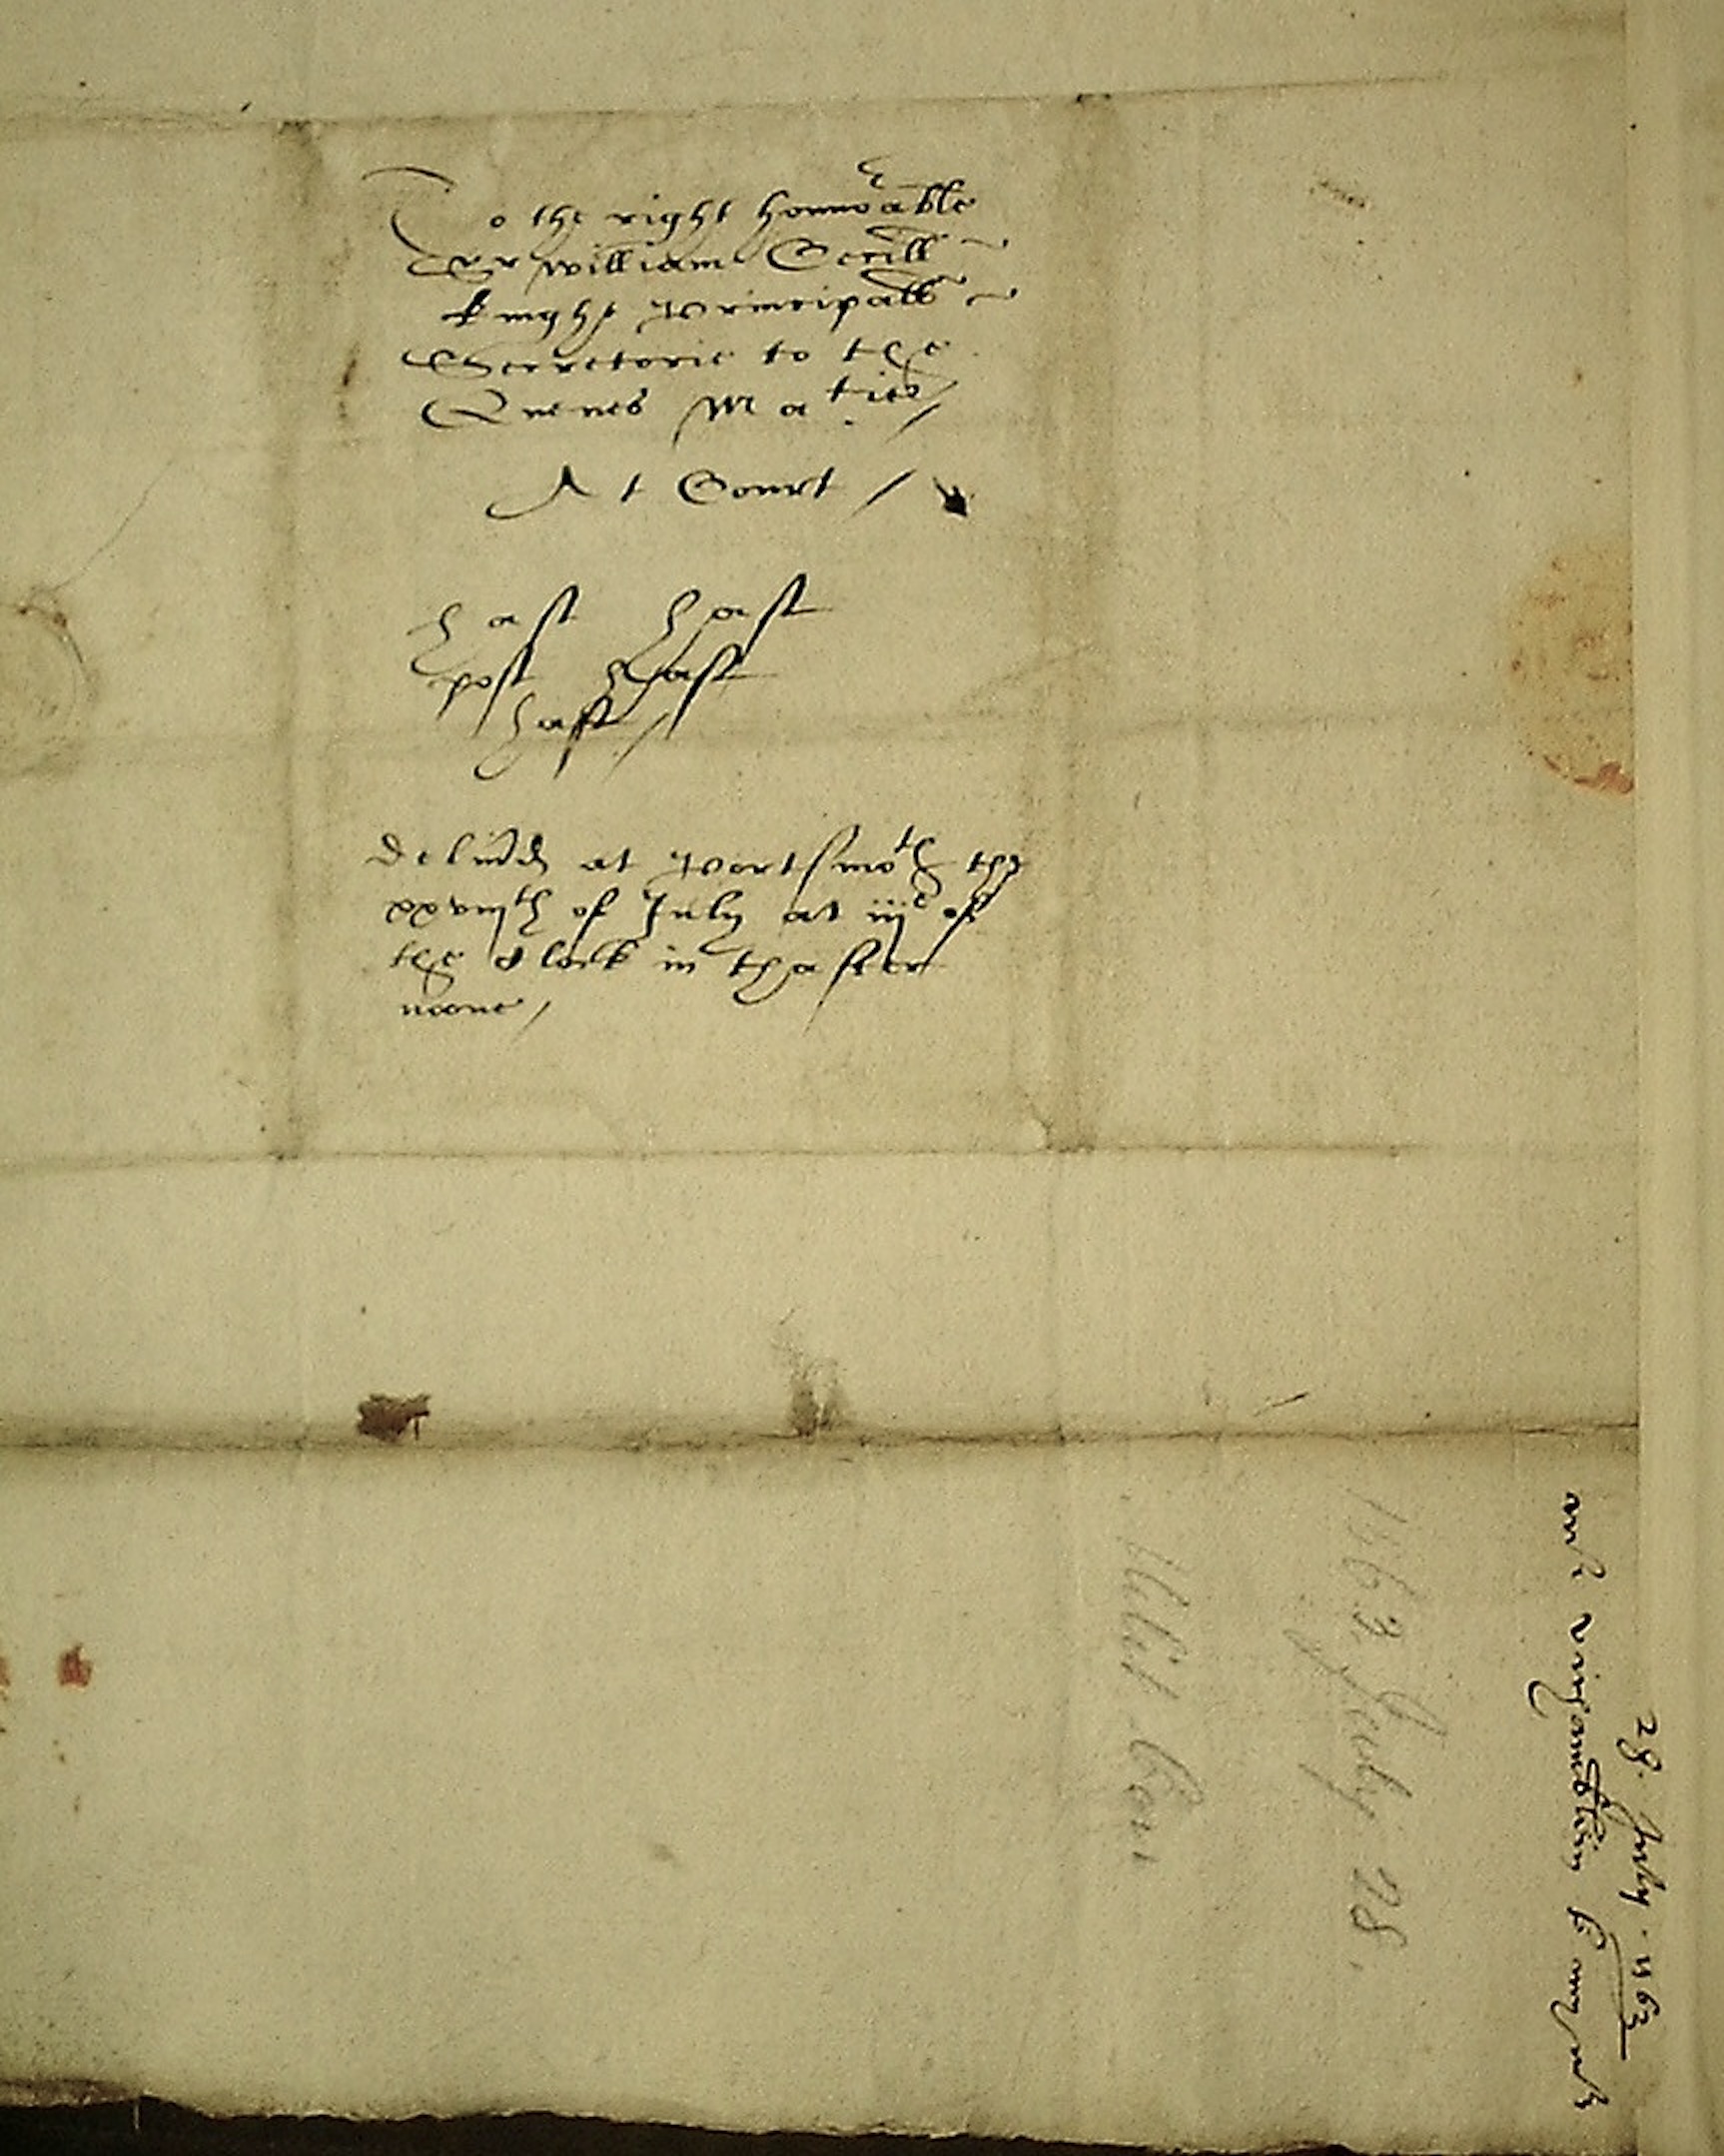 To the right honnorable
Sr William Cecill
knight Principall
Secretorie to the
Quenes Maties/
At Court /
hast hast
post hast
hast /
Deliũd at Portsmoth the
xxviijth of July at iije of
the Clock in thafter
noone /
28. July. 1563
1563 July 28.